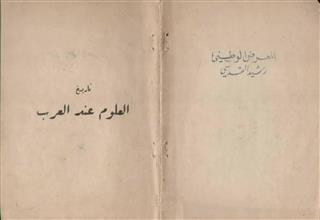 المعرض الوطني
رشيد القدسي
تاريخ
العلوم عند العرب